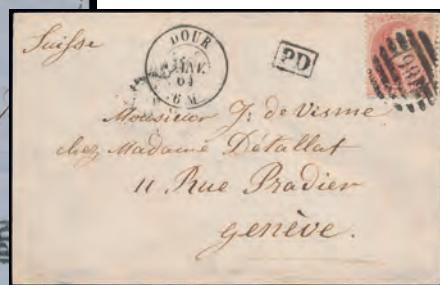 Suisse
DOUR
JANV.
64
6 M
PD
Monsieur J: de Visme
chez Madame Détallat
11 Rue Pradier
Genève.